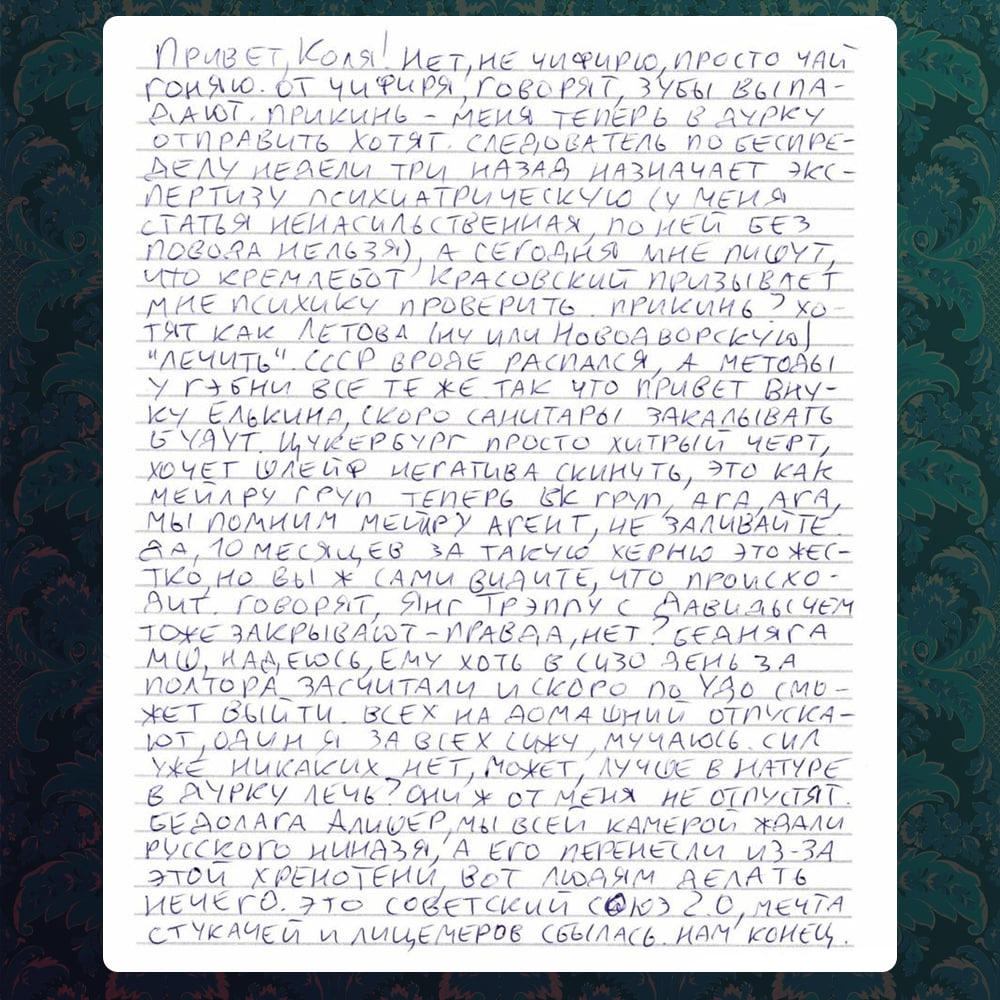 Привет, Коля! Нет, не чифирю, просто чай
гоняю. От чифиря, говорят, зубы выпа-
дают. Прикинь – меня теперь в дурку
отправить хотят. Следователь по беспре-
делу недели три назад назначает экс-
пертизу психиатрическую (у меня
статья ненасильственная, по ней без
повода нельзя), а сегодня мне пишут,
что кремлебот Красовский призывает
мне психику проверить. Прикинь? Хо-
тят как Летова (ну или Новодворскую)
"лечить". СССР вроде распался, а методы
у гэбни все те же. Так что привет вну-
ку Елькина, скоро санитары закалывать
будут. Цукербург просто хитрый черт,
хочет шлейф негатива скинуть, это как
Мейлру груп теперь ВК груп, ага, ага,
мы помним Мейлру Агент, не заливайте.
Да, 10 месяцев за такую херню это жес-
тко, но вы ж сами видите, что происхо-
дит. Говорят, Янг Трэппу с Давидычем
тоже закрывают – правда, нет? Бедняга
МШ, надеюсь, ему хоть в СИЗО день за
полтора засчитали и скоро по УДО смо-
жет выйти. Всех на домашний отпуска-
ют, один я за всех сижу, мучаюсь. Сил
уже никаких нет, может, лучше в натуре
в дурку лечь? Они ж от меня не отпустят.
Бедолага Алишер, мы всей камерой ждали
русского ниндзя, а его перенесли из-за
этой хренотени, вот людям делать
нечего. Это Советский Союз 2.0, мечта
стукачей и лицемеров сбылась. Нам конец.